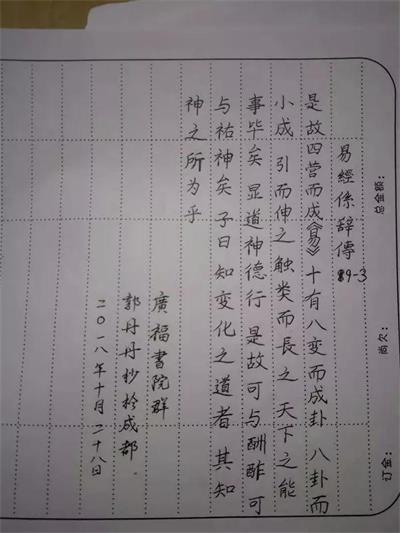 总金额：
尚欠：
订金：
易經係辞傳89-3
是故四营而成《易》十有八变而成卦 八卦而
小成 引而伸之触类而長之 天下之能
事毕矣 显道神德行 是故可与酬酢可
与祐神矣 子曰知变化之道者 其知
神之所为乎
廣福書院群
郭丹丹抄於成都.
二〇一八年十月二十八日